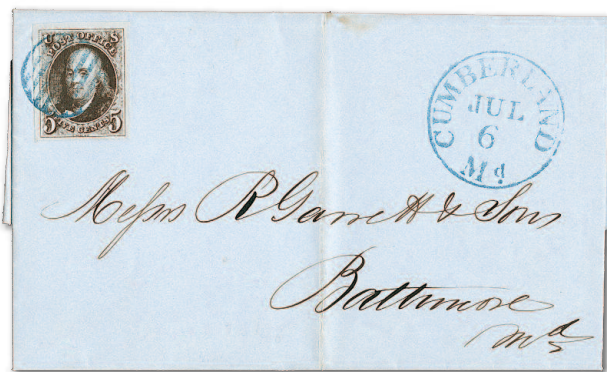 U S
POST OFFICE
5 FIVE CENTS 5
CUMBERLAND
JUL
6
Md
Messrs R Garrett & Sons
Baltimore
Md